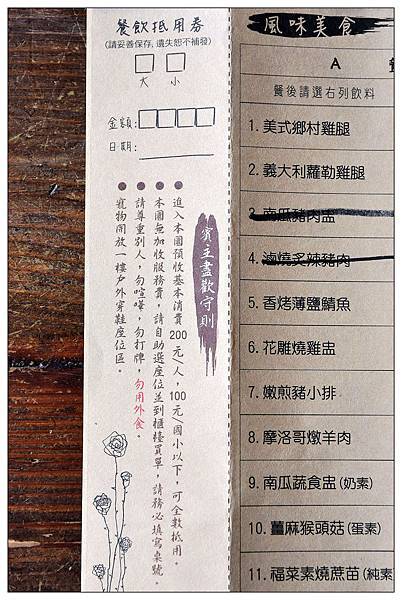 餐飲抵用券
(請妥善保存, 遺失恕不補發)
大 小
金額:
日期:
賓主盡歡守則
●進入本園預收基本消費200元/人，100元/國小以下，可全數抵用。
●本園無加收服務費，請自助選座位並到櫃檯買單，請務必填寫桌號。
●請尊重別人，勿喧嘩，勿打牌，勿用外食。
●寵物開放一樓戶外穿鞋座位區。
風味美食
A
餐後請選右列飲料
1.美式鄉村雞腿
2.義大利蘿勒雞腿
3.南瓜豬肉盅
4.滷燒炙辣豬肉
5.香烤薄鹽鯖魚
6.花雕燒雞盅
7.嫩煎豬小排
8.摩洛哥燉羊肉
9.南瓜蔬食盅(奶素)
10.薑麻猴頭菇(蛋素)
11.福菜素燒蔗苗(純素